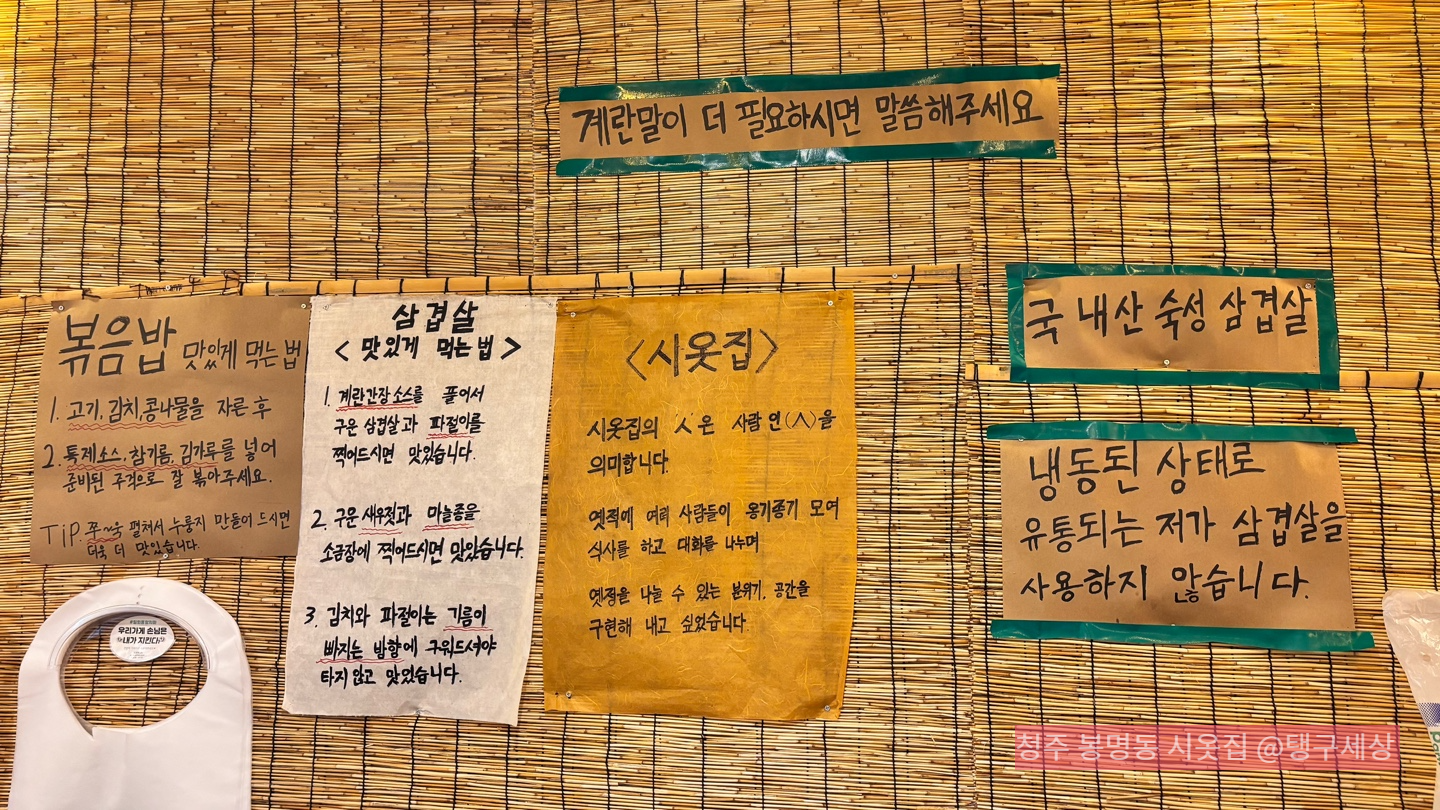 계란말이 더 필요하시면 말씀해주세요
볶음밥 맛있게 먹는 법
1. 고기, 김치, 콩나물을 자른 후
2. 특제소스, 참기름, 김가루를 넣어
준비된 주걱으로 잘 볶아주세요.
TiP. 쭈~욱 펼쳐서 누룽지 만들어 드시면
더욱 더 맛있습니다.
삼겹살
< 맛있게 먹는 법 >
1. 계란간장소스를 풀어서
구운 삼겹살과 파절이를
찍어드시면 맛있습니다.
2. 구운 새우젓과 마늘종을
소금장에 찍어드시면 맛있습니다.
3. 김치와 파절이는 기름이
빠지는 방향에 구워드셔야
타지 않고 맛있습니다.
<시옷집>
시옷집의 ㅅ은 사람 인(人)을
의미합니다.
옛적에 여러 사람들이 옹기종기 모여
식사를 하고 대화를 나누며
옛정을 나눌 수 있는 분위기, 공간을
구현해 내고 싶었습니다.
국내산 숙성 삼겹살
냉동된 상태로
유통되는 저가 삼겹살을
사용하지 않습니다.
우리가게 손님은
내가 지킨다!
청주 봉명동 시옷집 @탱구세싱